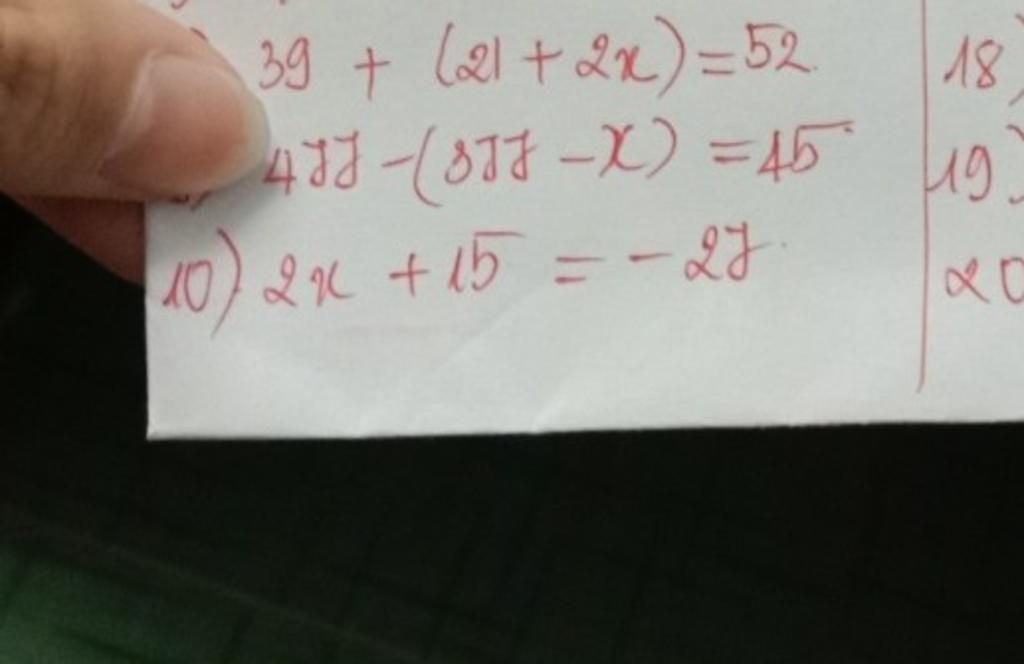 39 + (21 + 2x) = 52
477 - (377 - x) = 45
10) 2x + 15 = - 27
18)
19)
20